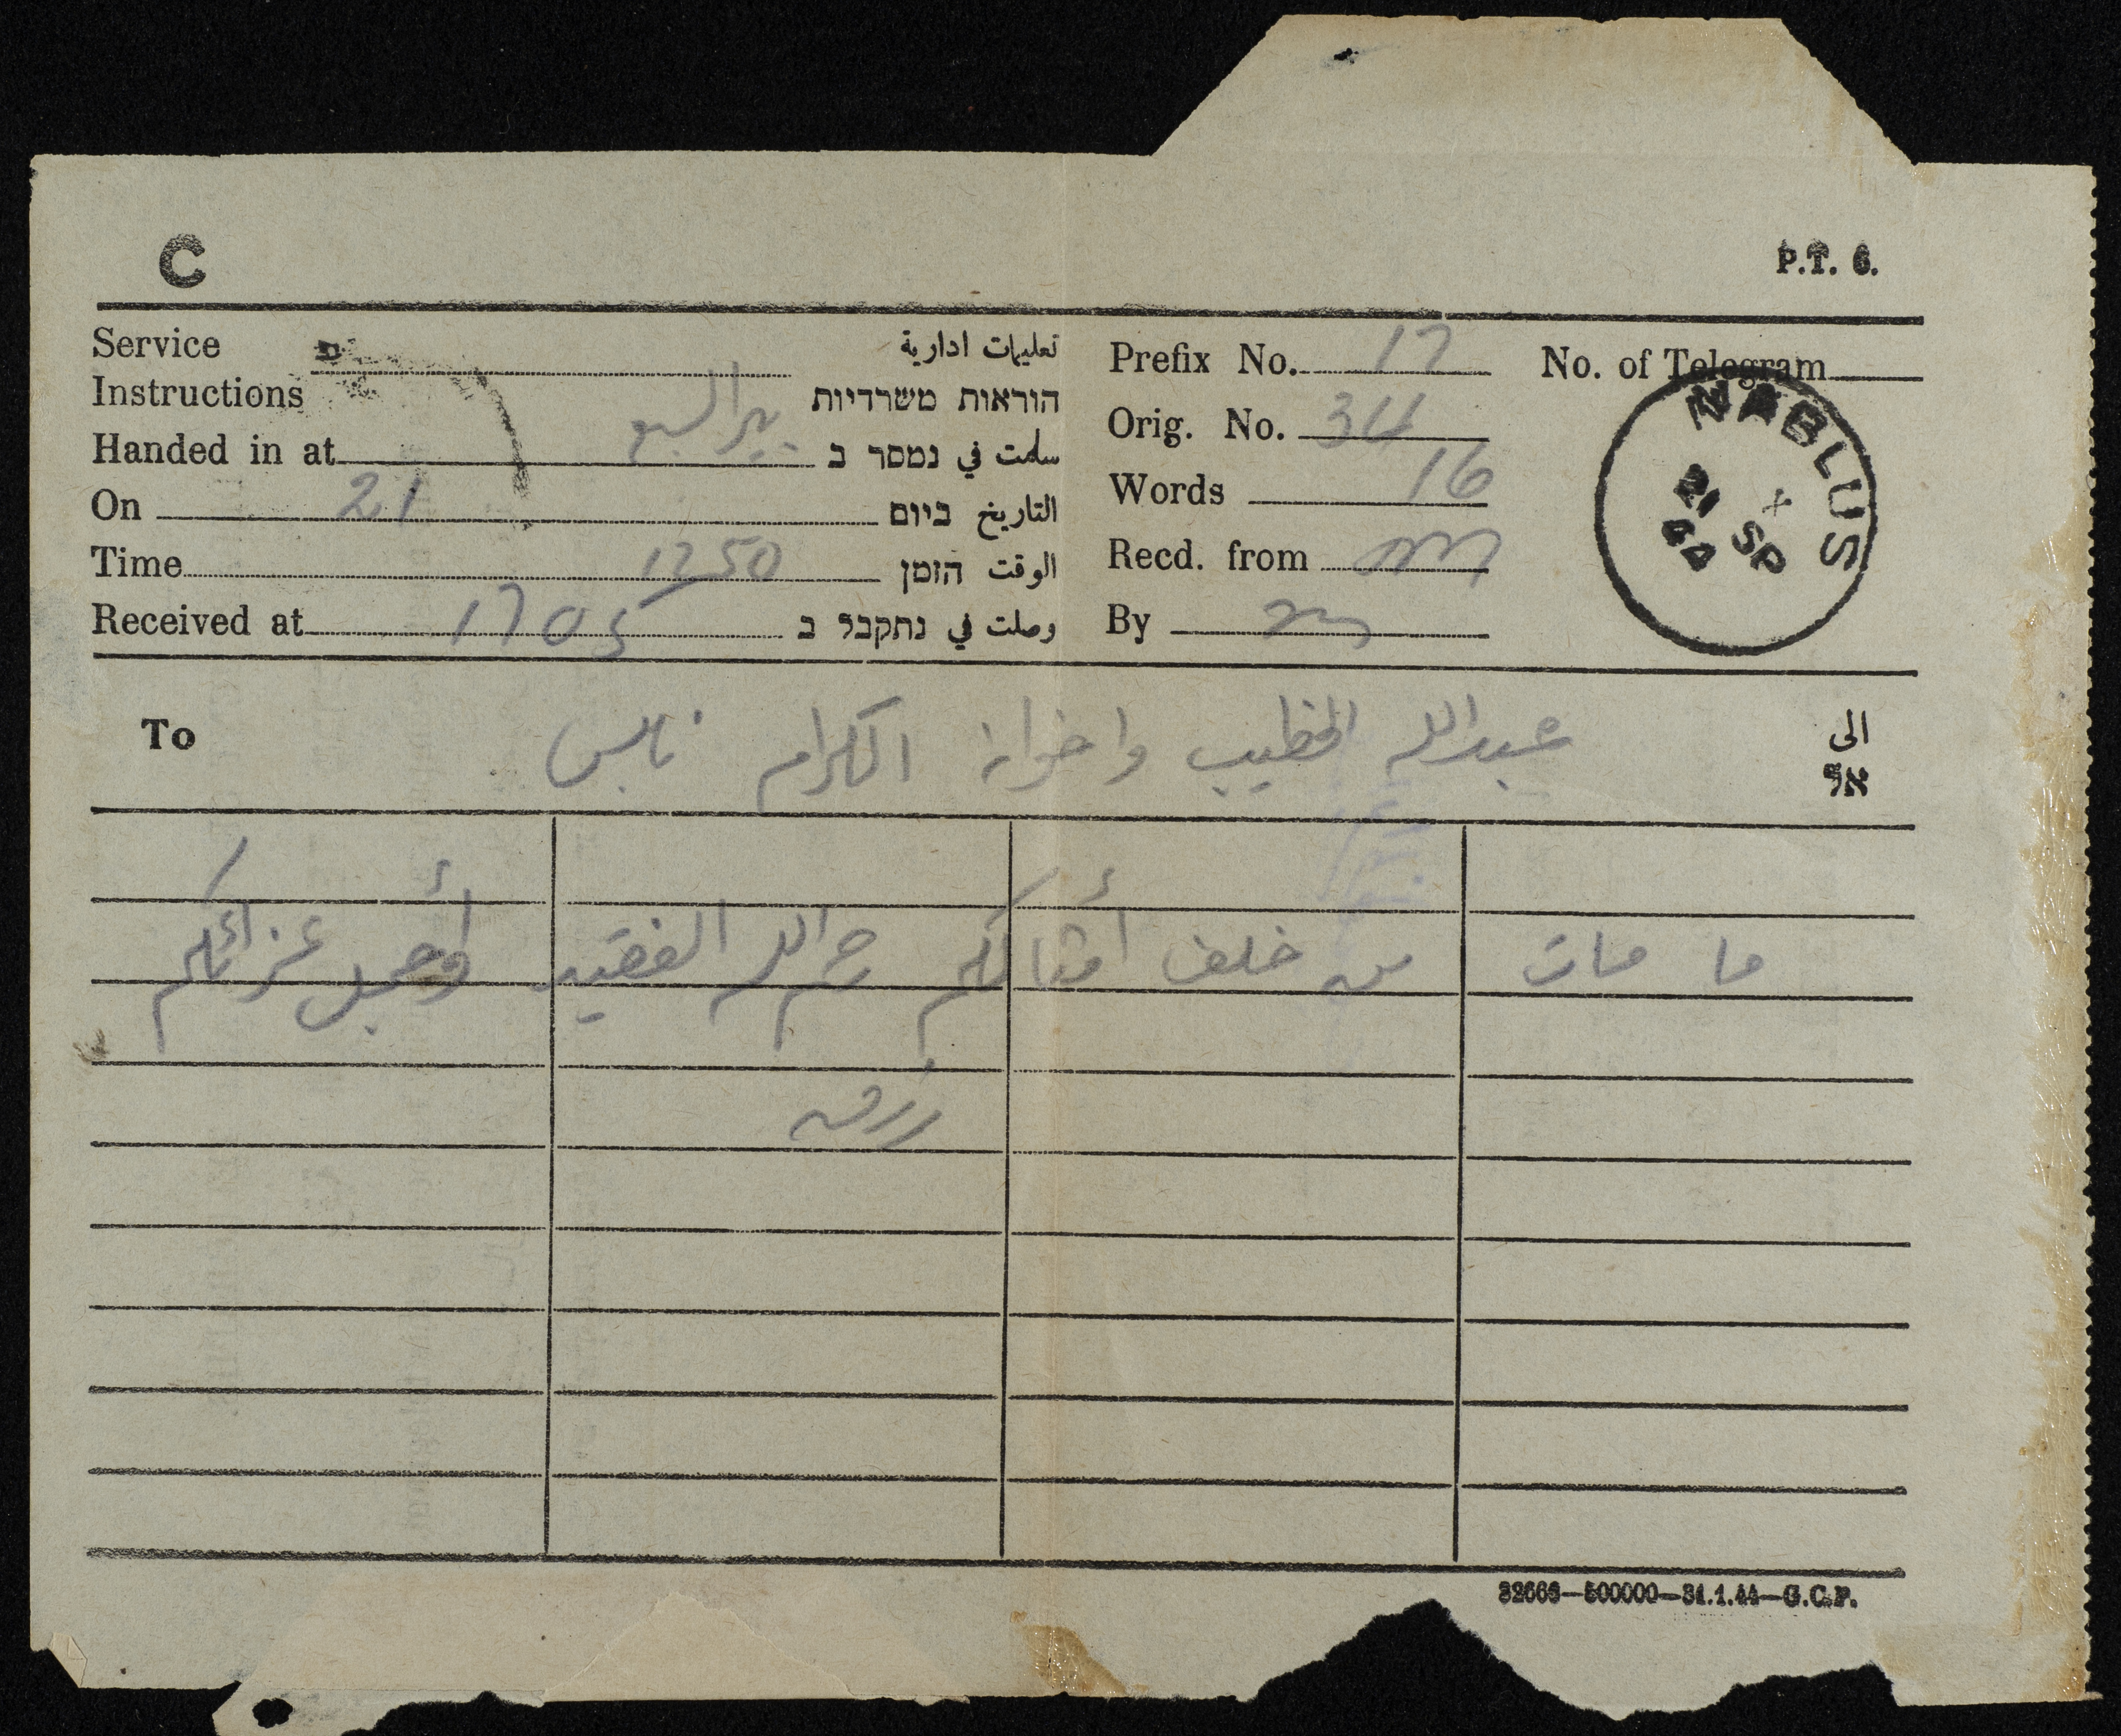 C
P.T. 6.
Service تعليمات ادارية
Instructions הוראות משרדיות
Handed in at بير السبع سلمت في נמסר ב
On 21 التاريخ ביום
Time 1250 الوقت הזמן
Received at 1705 وصلت في נתקבל ב
Prefix No. 17
No. of Telegram
Orig. No. 34
Words 16
Recd. from
By
NABLUS
21 SP
44
To عبدالله الخطيب واخوانه الكرام نابلس الى
אל
ما مات من خلف أمثالكم رحم الله الفقيد وأجمل عزائكم
32663—500000—31.1.44—G.C.P.